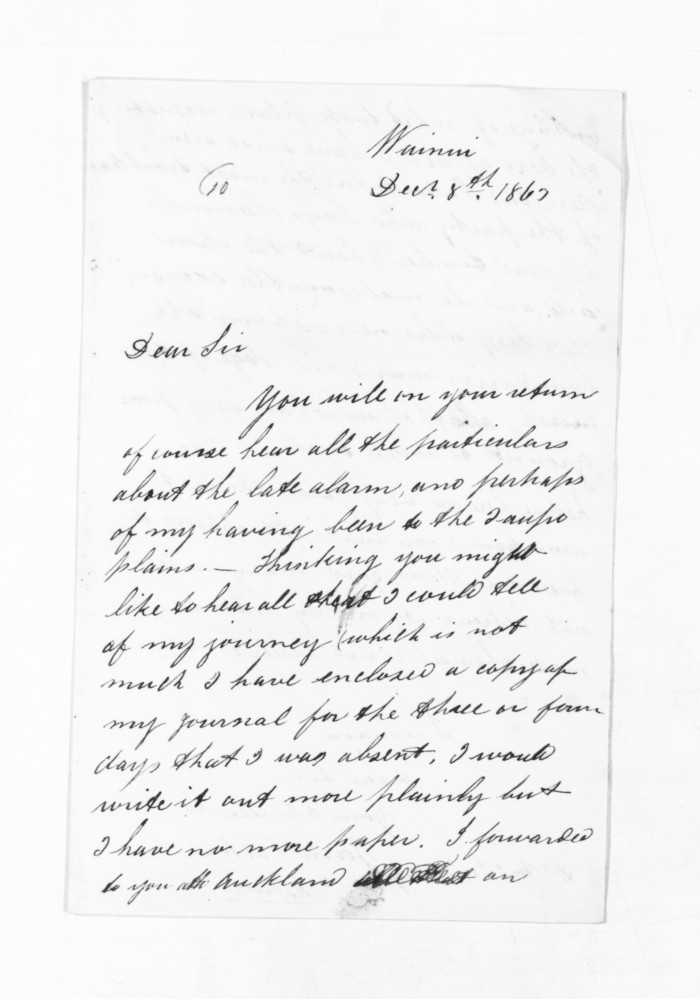 Wainui
Decr. 8th. 1867
(10
Dear Sir
You will on your return
of course hear all the particulars
about the late alarm, and perhaps
of my having been to the Taupo
plains. — Thinking you might
like to hear all that I could tell
of my journey (which is not
much I have enclosed a copy of
my journal for the three or four
days that I was absent, I would
write it out more plainly but
I have no more paper. I forwarded
to you at Auckland an